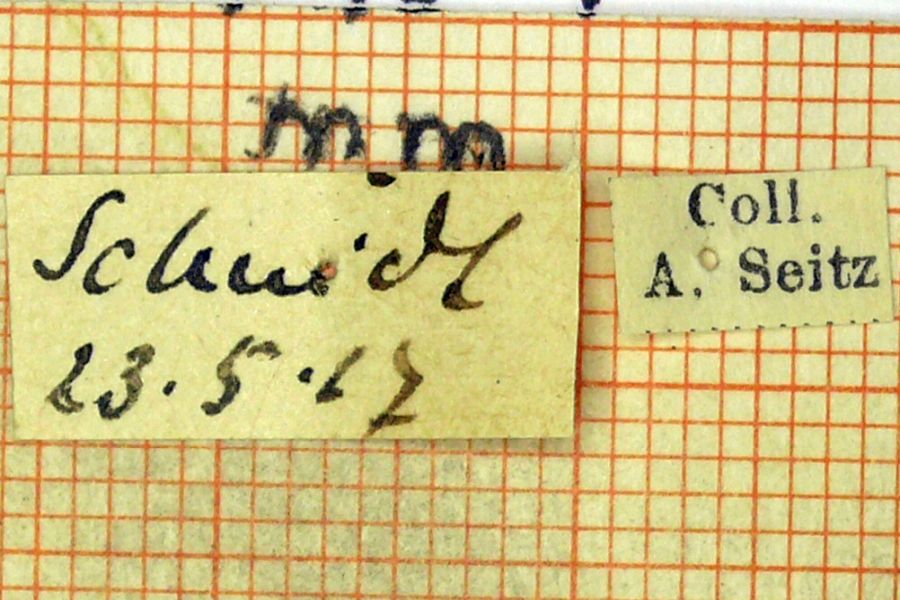 mm
Schmidt
23.5.17
Coll.
A. Seitz